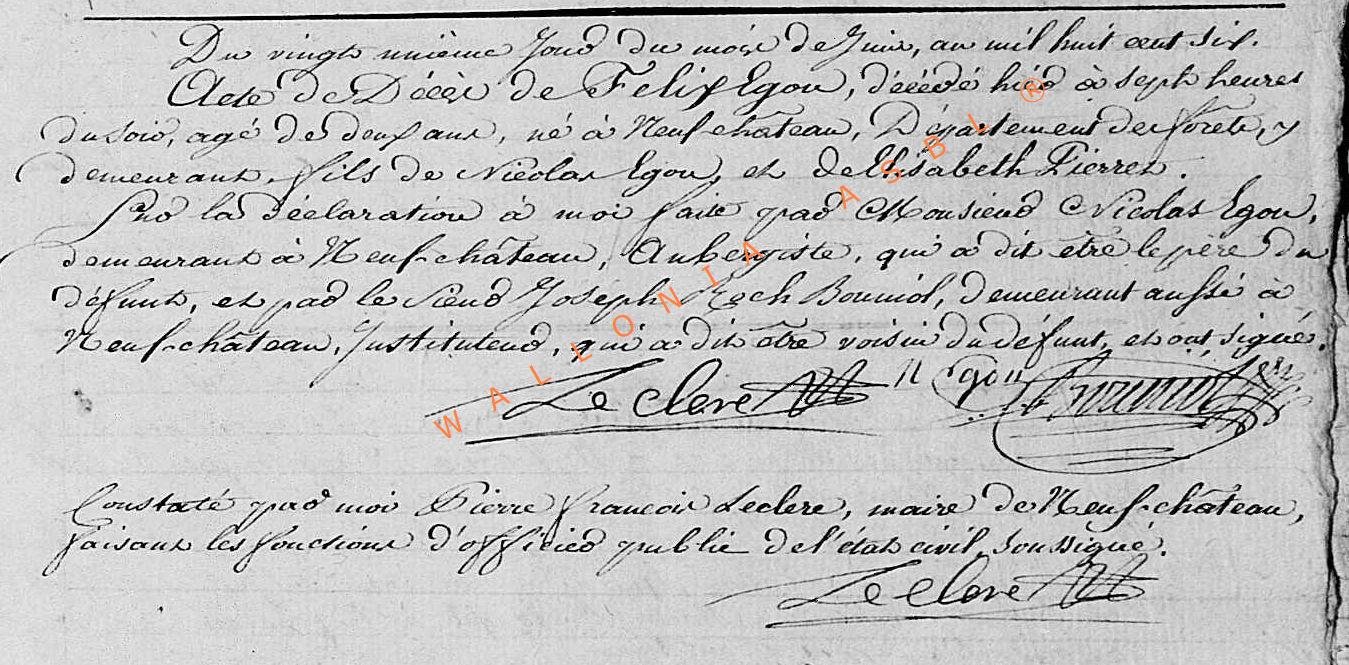 Du vingt unième Jour du mois de Juin, an mil huit cent six.
Acte de Décès de Felix Egon, décédé hier à sept heures
du soir, agé de deux ans, né à Neufchâteau, Département des forêts, y
demeurant, fils de Nicolas Egon, et de Elisabeth Pierret.
Sur la déclaration à moi faite par Monsieur Nicolas Egon,
demeurant à Neufchâteau, Aubergiste, qui a dit être le père du
défunt, et par le Sieur Joseph Roch Boumiol, demeurant aussi à
Neufchâteau, Instituteur, qui a dit être voisin du défunt, et ont signé.
Leclere N Egon Boumiol
Constaté par moi Pierre françois Leclere, maire de Neufchâteau,
faisant les fonctions d'officier public de l'état civil soussigné.
Leclere
WALLONIA ASBL ®